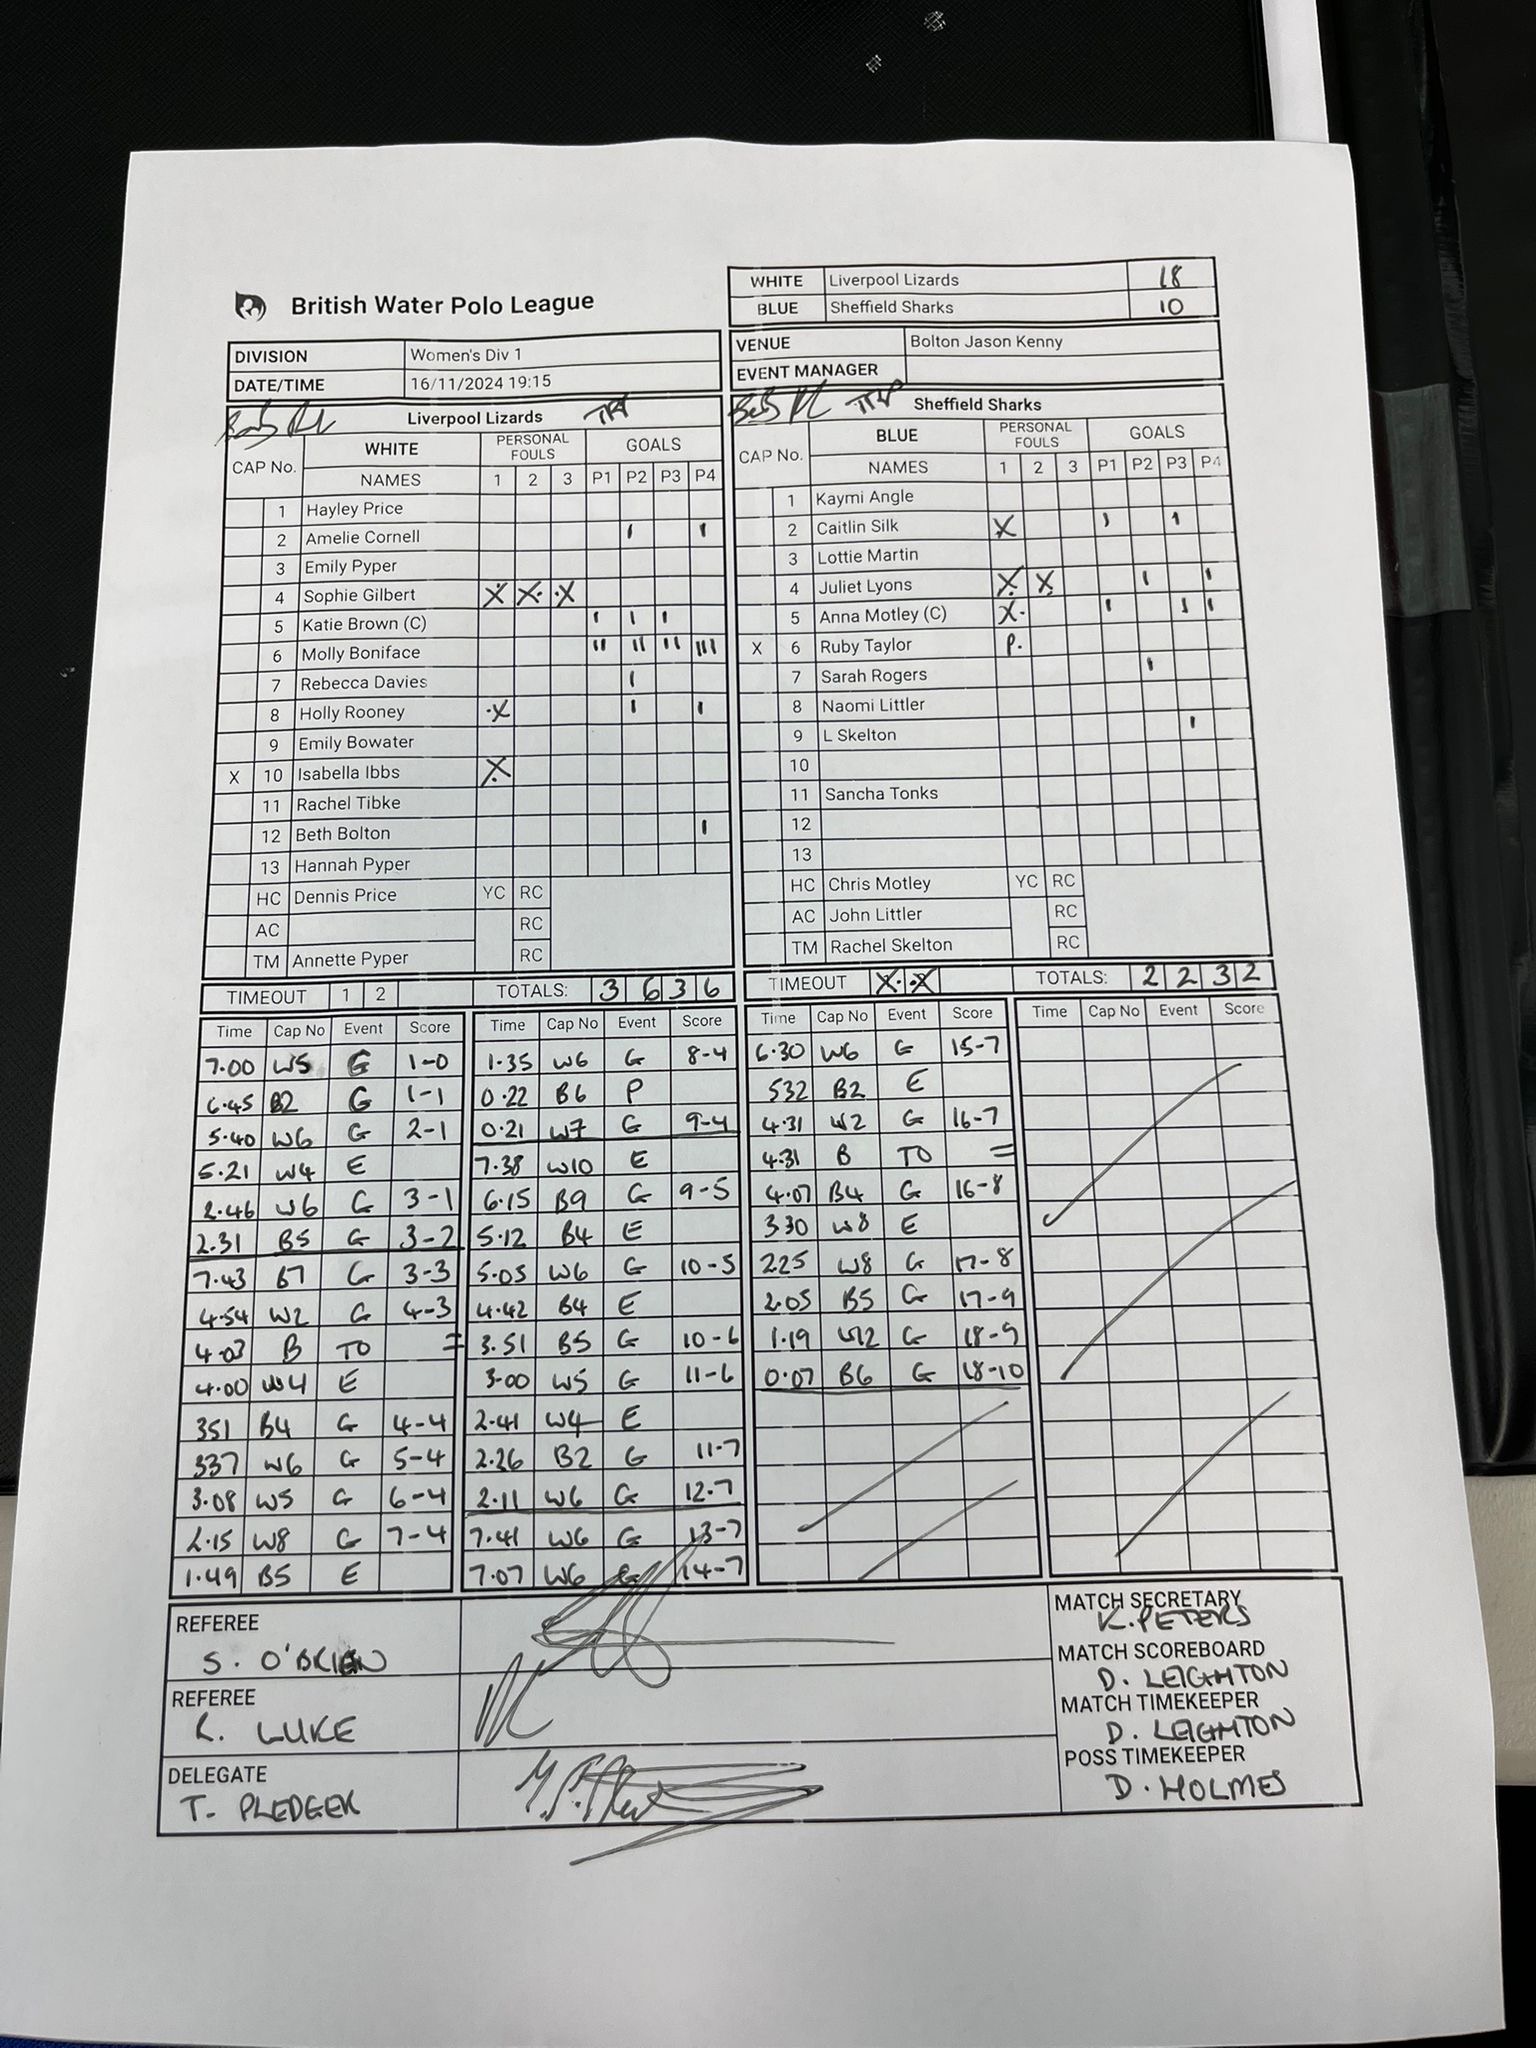 British Water Polo League
WHITE Liverpool Lizards 18
BLUE Sheffield Sharks 10
DIVISION Women's Div 1
DATE/TIME 16/11/2024 19:15
VENUE Bolton Jason Kenny
EVENT MANAGER
Liverpool Lizards
CAP No. WHITE PERSONAL FOULS GOALS
NAMES 1 2 3 P1 P2 P3 P4
1 Hayley Price
2 Amelie Cornell I I
3 Emily Pyper
4 Sophie Gilbert X X X
5 Katie Brown (C) I I I
6 Molly Boniface II II II III
7 Rebecca Davies I
8 Holly Rooney X I I
9 Emily Bowater
X 10 Isabella Ibbs X
11 Rachel Tibke
12 Beth Bolton I
13 Hannah Pyper
HC Dennis Price YC RC
AC RC
TM Annette Pyper RC
TIMEOUT 1 2 TOTALS: 3 6 3 6
Sheffield Sharks
CAP No. BLUE PERSONAL FOULS GOALS
NAMES 1 2 3 P1 P2 P3 P4
1 Kaymi Angle
2 Caitlin Silk X I I
3 Lottie Martin
4 Juliet Lyons X X I I
5 Anna Motley (C) X I I I
X 6 Ruby Taylor P.
7 Sarah Rogers I
8 Naomi Littler
9 L Skelton I
10
11 Sancha Tonks
12
13
HC Chris Motley YC RC
AC John Littler RC
TM Rachel Skelton RC
TIMEOUT X X TOTALS: 2 2 3 2
Time Cap No Event Score
7.00 W5 G 1-0
6.45 B2 G 1-1
5.40 W6 G 2-1
5.21 W4 E
2.46 W6 G 3-1
2.31 B5 G 3-2
7.43 B7 G 3-3
4.54 W2 G 4-3
4.03 B TO =
4.00 W4 E
351 B4 G 4-4
337 W6 G 5-4
3.08 W5 G 6-4
2.15 W8 G 7-4
1.49 B5 E
Time Cap No Event Score
1.35 W6 G 8-4
0.22 B6 P
0.21 W7 G 9-4
7.38 W10 E
6.15 B9 G 9-5
5.12 B4 E
5.05 W6 G 10-5
4.42 B4 E
3.51 B5 G 10-6
3.00 W5 G 11-6
2.41 W4 E
2.26 B2 G 11-7
2.11 W6 G 12.7
7.41 W6 G 13-7
7.07 W6 G 14-7
Time Cap No Event Score
6.30 W6 G 15-7
532 B2 E
4.31 W2 G 16-7
4.31 B TO =
4.07 B4 G 16-8
330 W8 E
225 W8 G 17-8
2.05 B5 G 17-9
1.19 W12 G 18-9
0.07 B6 G 18-10
Time Cap No Event Score
REFEREE
S. O'BRIEN
REFEREE
R. LUKE
DELEGATE
T. PLEDGER
MATCH SECRETARY
K. PETERS
MATCH SCOREBOARD
D. LEIGHTON
MATCH TIMEKEEPER
D. LEIGHTON
POSS TIMEKEEPER
D. HOLMES